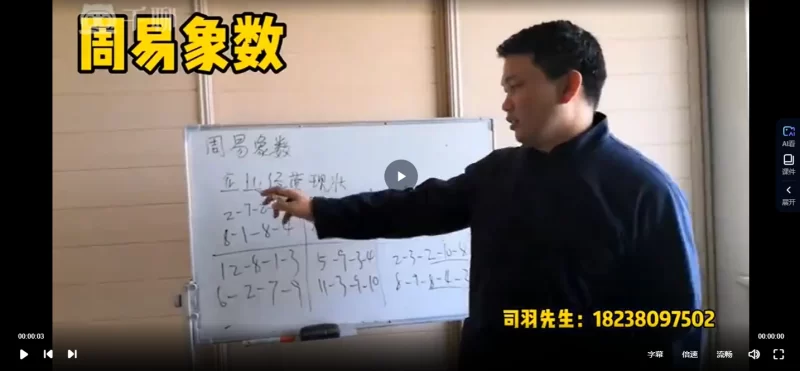 千聊
周易象数
周易象数
企业经营现状
8-1-8-4
12-8-1-3
5-9-3-4
2-3-2-10-8
6-2-7-9
11-3-9-10
司羽先生：18238097502
AI看
课件
展开
00:00:03
00:00:00
字幕
倍速
流畅